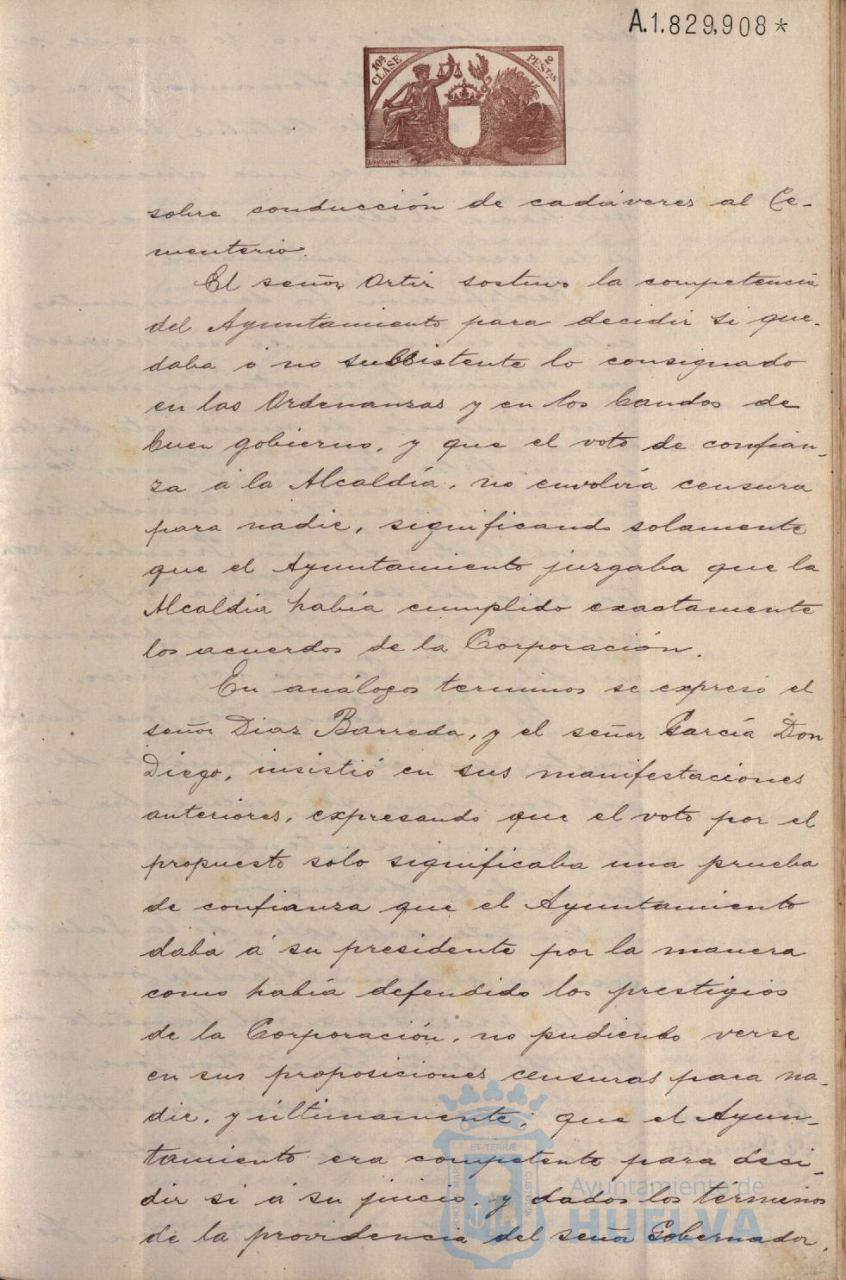 A.1.829,908*
10ª CLASE 2 PESTAS
sobre conducción de cadáveres al Ce-
menterio.
El señor Ortiz sostuvo la competencia
del Ayuntamiento para decidir si que-
daba ó no subsistente lo consignado
en las Ordenanzas y en los bandos de
buen gobierno, y que el voto de confian-
za á la Alcaldía, no envolvía censura
para nadie, significando solamente
que el Ayuntamiento juzgaba que la
Alcaldía había cumplido exactamente
los acuerdos de la Corporación.
En análogos terminos se expresó el
señor Diaz Barreda, y el señor García Don
Diego, insistió en sus manifestaciones
anteriores, expresando que el voto por el
propuesto sólo significaba una prueba
de confianza que el Ayuntamiento
daba á su presidente por la manera
como había defendido los prestigios
de la Corporación, no pudiendo verse
en sus proposiciones censuras para na-
die, y últimamente, que el Ayun-
tamiento era competente para deci-
dir si á su juicio, y dados los términos
de la providencia del señor Gobernador,
Ayuntamiento de
HUELVA